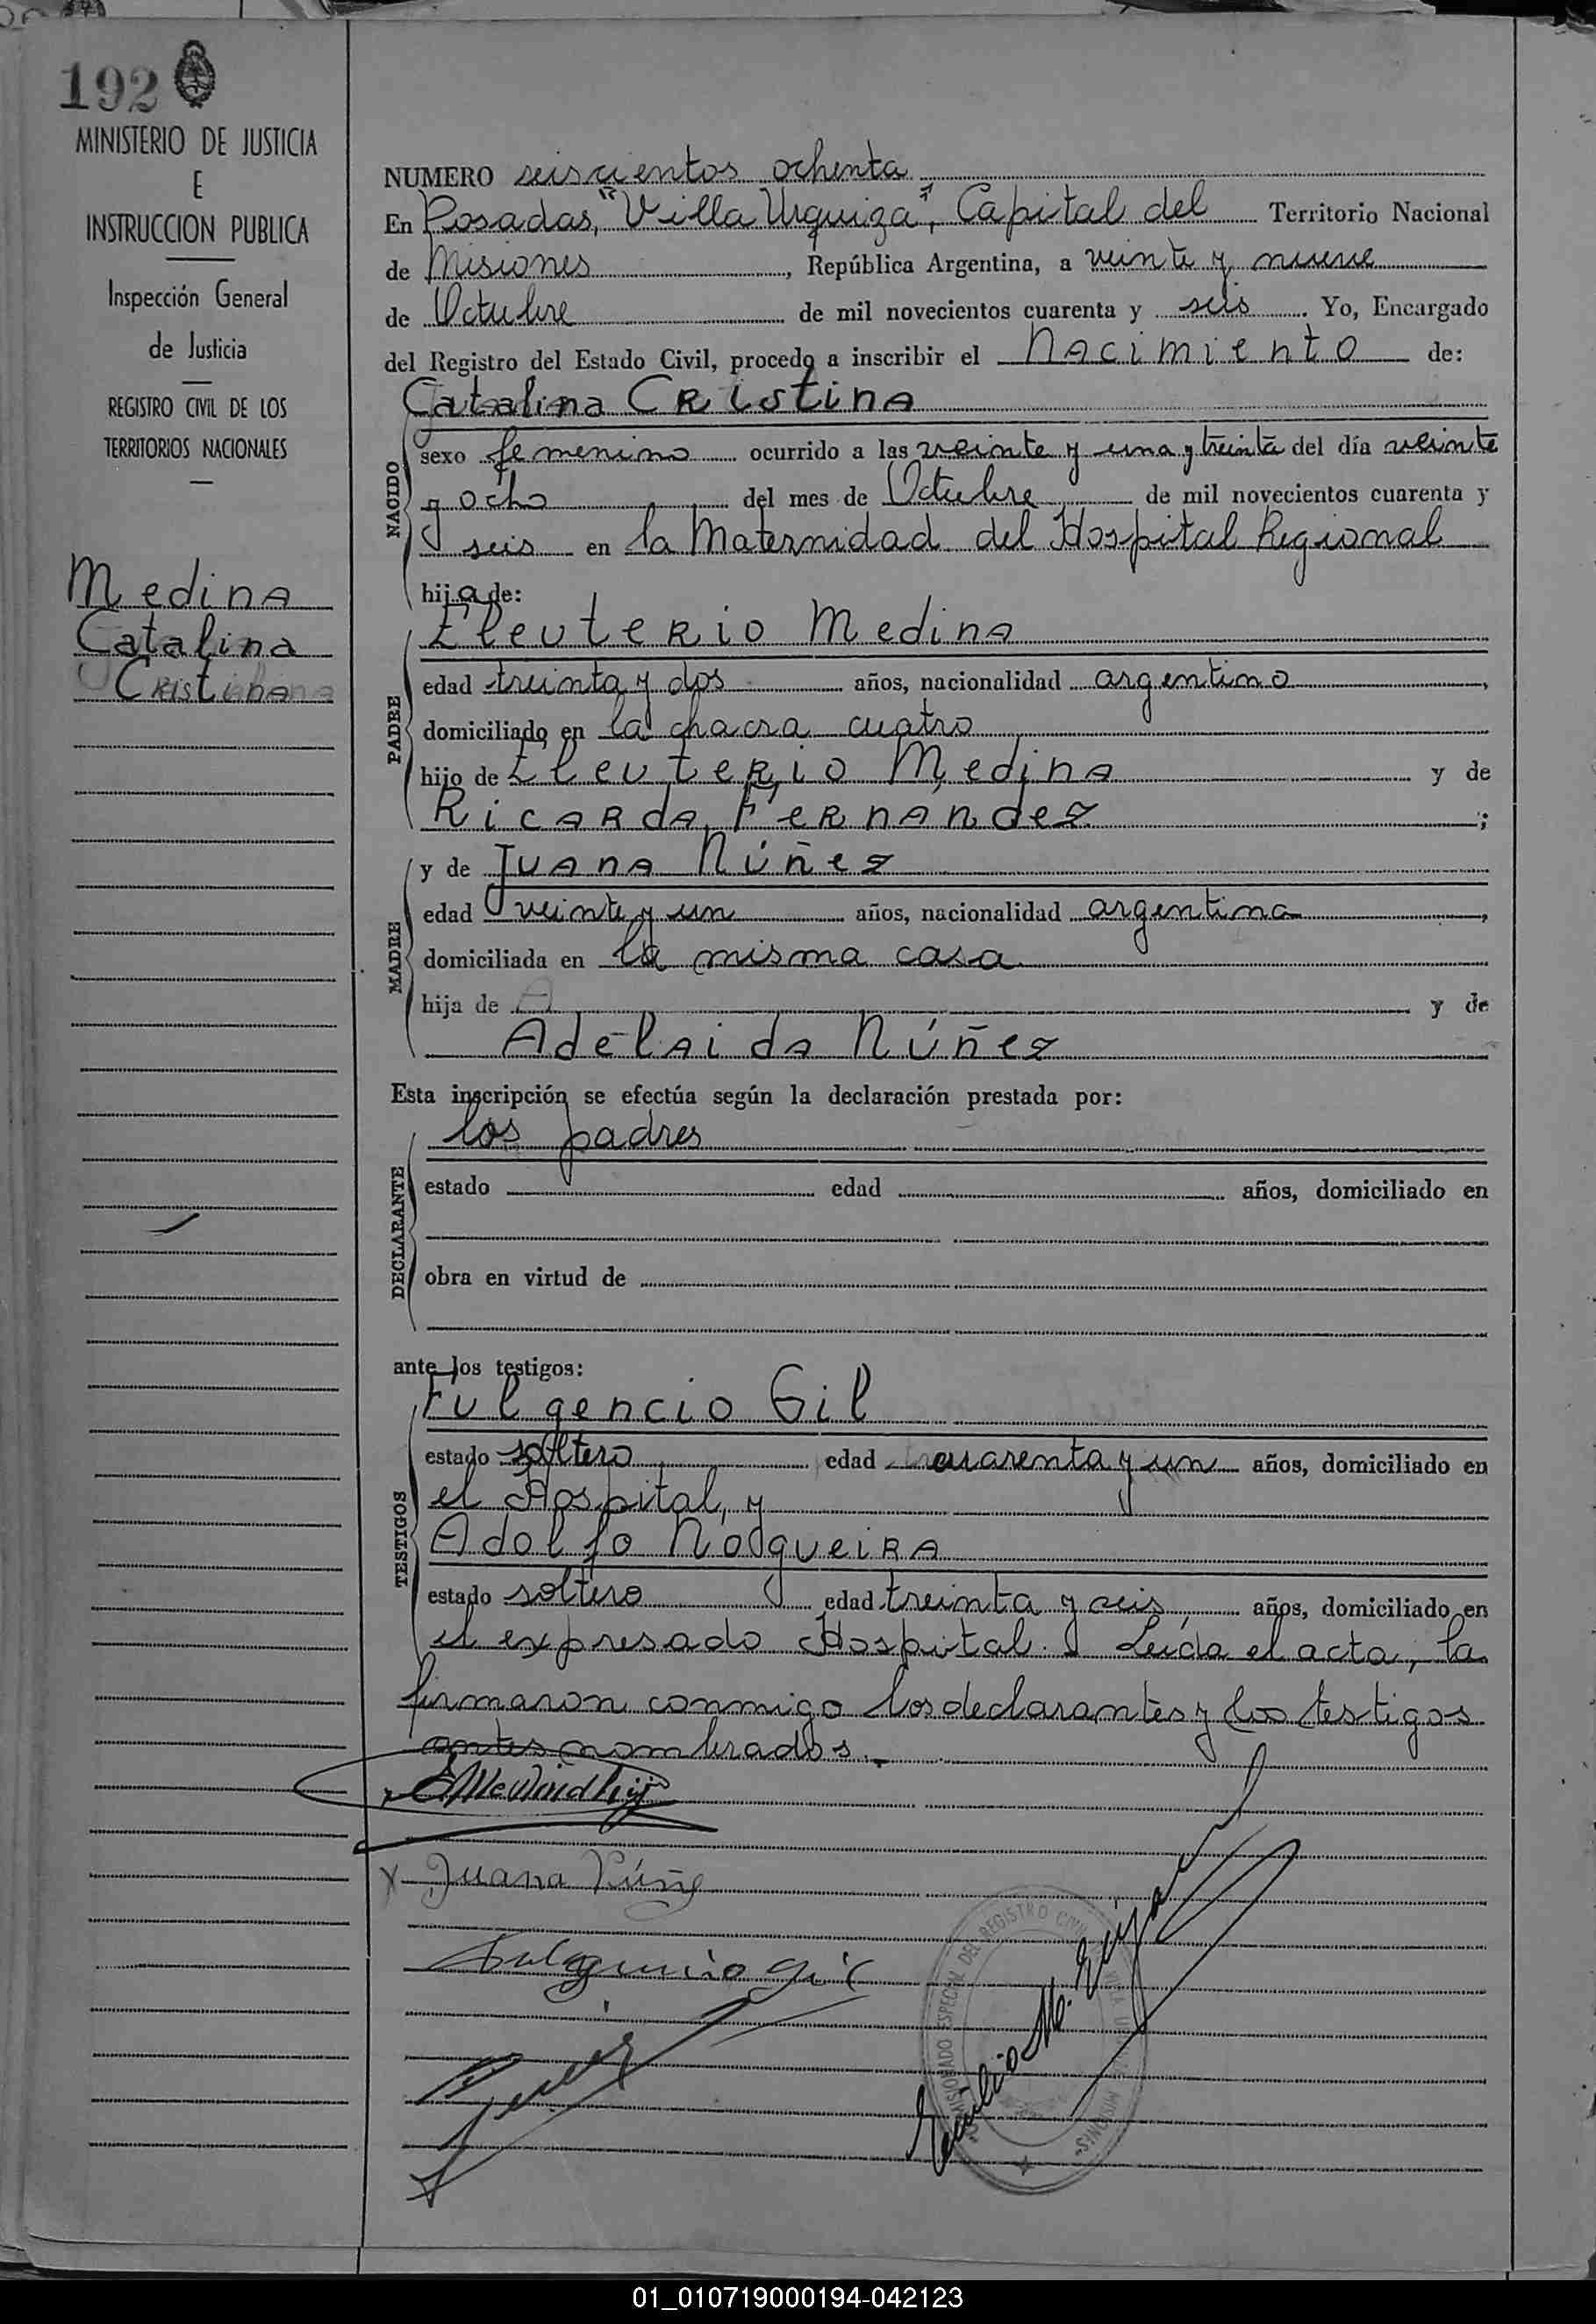 192
MINISTERIO DE JUSTICIA
E
INSTRUCCION PUBLICA
Inspección General
de Justicia
REGISTRO CIVIL DE LOS
TERRITORIOS NACIONALES
Medina
Catalina
Cristina
NUMERO seiscientos ochenta
En Posadas, "Villa Urquiza", Capital del Territorio Nacional
de Misiones, República Argentina, a veinte y nueve
de Octubre de mil novecientos cuarenta y seis. Yo, Encargado
del Registro del Estado Civil, procedo a inscribir el Nacimiento de:
Catalina Cristina
NACIDO
sexo femenino ocurrido a las veinte y una y treinta del día veinte
y ocho del mes de Octubre de mil novecientos cuarenta y
seis en la Maternidad del Hospital Regional
hija de:
PADRE
Eleuterio Medina
edad treinta y dos años, nacionalidad argentino,
domiciliado en la chacra cuatro
hijo de Eleuterio Medina y de
Ricarda Fernandez;
MADRE
y de Juana Núñez
edad veinte y un años, nacionalidad argentina,
domiciliada en la misma casa
hija de A y de
Adelaida Núñez
Esta inscripción se efectúa según la declaración prestada por:
DECLARANTE
los padres
estado edad años, domiciliado en
obra en virtud de
ante los testigos:
TESTIGOS
Fulgencio Gil
estado soltero edad cuarenta y un años, domiciliado en
el Hospital, y
Adolfo Nogueira
estado soltero edad treinta y seis, años, domiciliado en
el expresado Hospital. Leída el acta, la
firmaron conmigo los declarantes y los testigos
antes nombrados.
x Juana Núñez
Fulgencio Gil
REGISTRO CIVIL
MISIONES
01_010719000194-042123